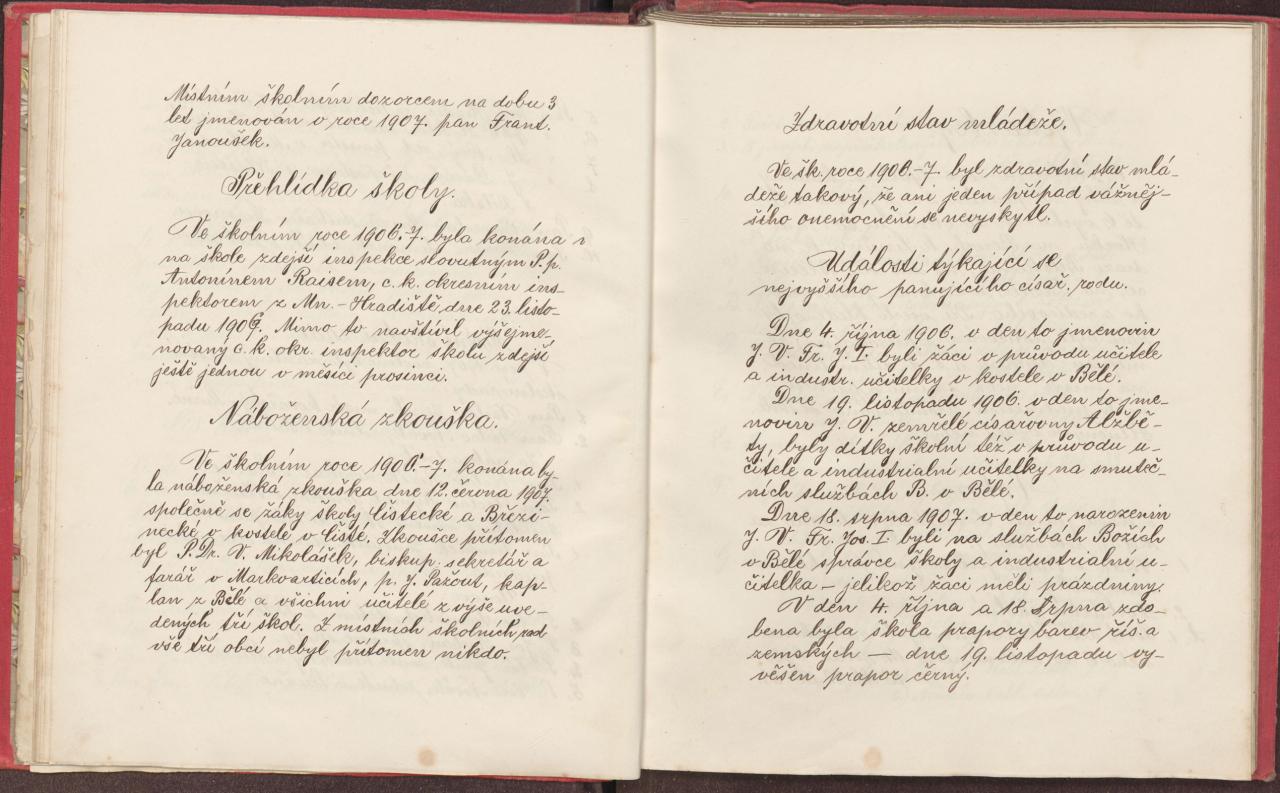 Místním školním dozorcem na dobu 3
let jmenován v roce 1907. pan Frant.
Janoušek.
Přehlídka školy.
Ve školním roce 1906.-7. byla konána
na škole zdejší inspekce slovutným P. p.
Antonínem Raisem, c. k. okresním ins-
pektorem z Mn. - Hradiště dne 23. listo-
padu 1906. Mimo to navštívil výšejme-
novaný c. k. okr. inspektor školu zdejší
ještě jednou v měsíci prosinci.
Náboženská zkouška.
Ve školním roce 1906-7. konána by-
la náboženská zkouška dne 12. června 1907.
společně se žáky školy čistecké a Březi-
necké v kostelě v Čisté. Zkoušce přítomen
byl P. Dr. V. Mikolášek, biskup. sekretář a
farář v Markvarticích, p. J. Pažout, kap-
lan z Bělé a všichni učitelé z výše uve-
dených tří škol. Z místních školních rad
vše tří obcí nebyl přítomen nikdo.
Zdravotní stav mládeže.
Ve šk. roce 1906.-7. byl zdravotní stav mlá-
deže takový, že ani jeden případ vážněj-
šího onemocnění se nevyskytl.
Události týkající se
nejvyššího panujícího císař. rodu.
Dne 4. října 1906. v den to jmenovin
J. V. Fr. J. I. byli žáci v průvodu učitele
a industr. učitelky v kostele v Bělé.
Dne 19. listopadu 1906. v den to jme-
novin J. V. zemřelé císařovny Alžbě-
ty, byly dítky školní též v průvodu u-
čitele a industrialní učitelky na smuteč-
ních službách B. v Bělé.
Dne 18. srpna 1907. v den to narozenin
J. V. Fr. Jos. I. byli na službách Božích
v Bělé správce školy a industrialní u-
čitelka - jelikož žáci měli prázdniny.
V den 4. října a 18. srpna zdo-
bena byla škola prapory barev říš. a
zemských - dne 19. listopadu vy-
věšen prapor černý.